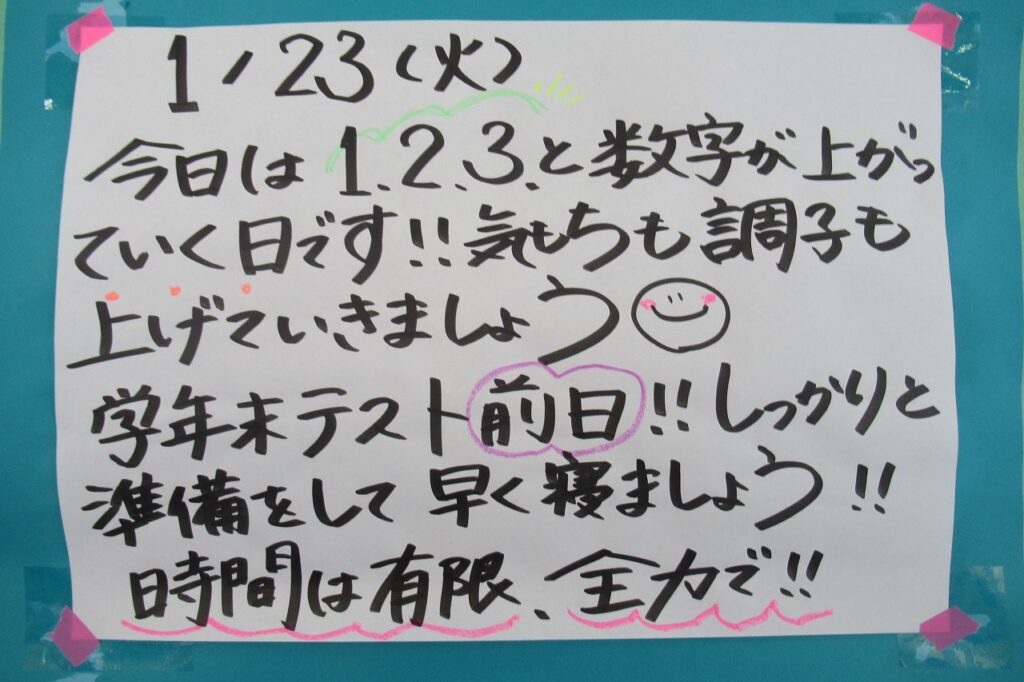 1/23(火)
今日は1.2.3.と数字が上がっ
ていく日です!!気もちも調子も
上げていきましょう
学年末テスト前日!!しっかりと
準備をして早く寝ましょう!!
時間は有限、全力で!!